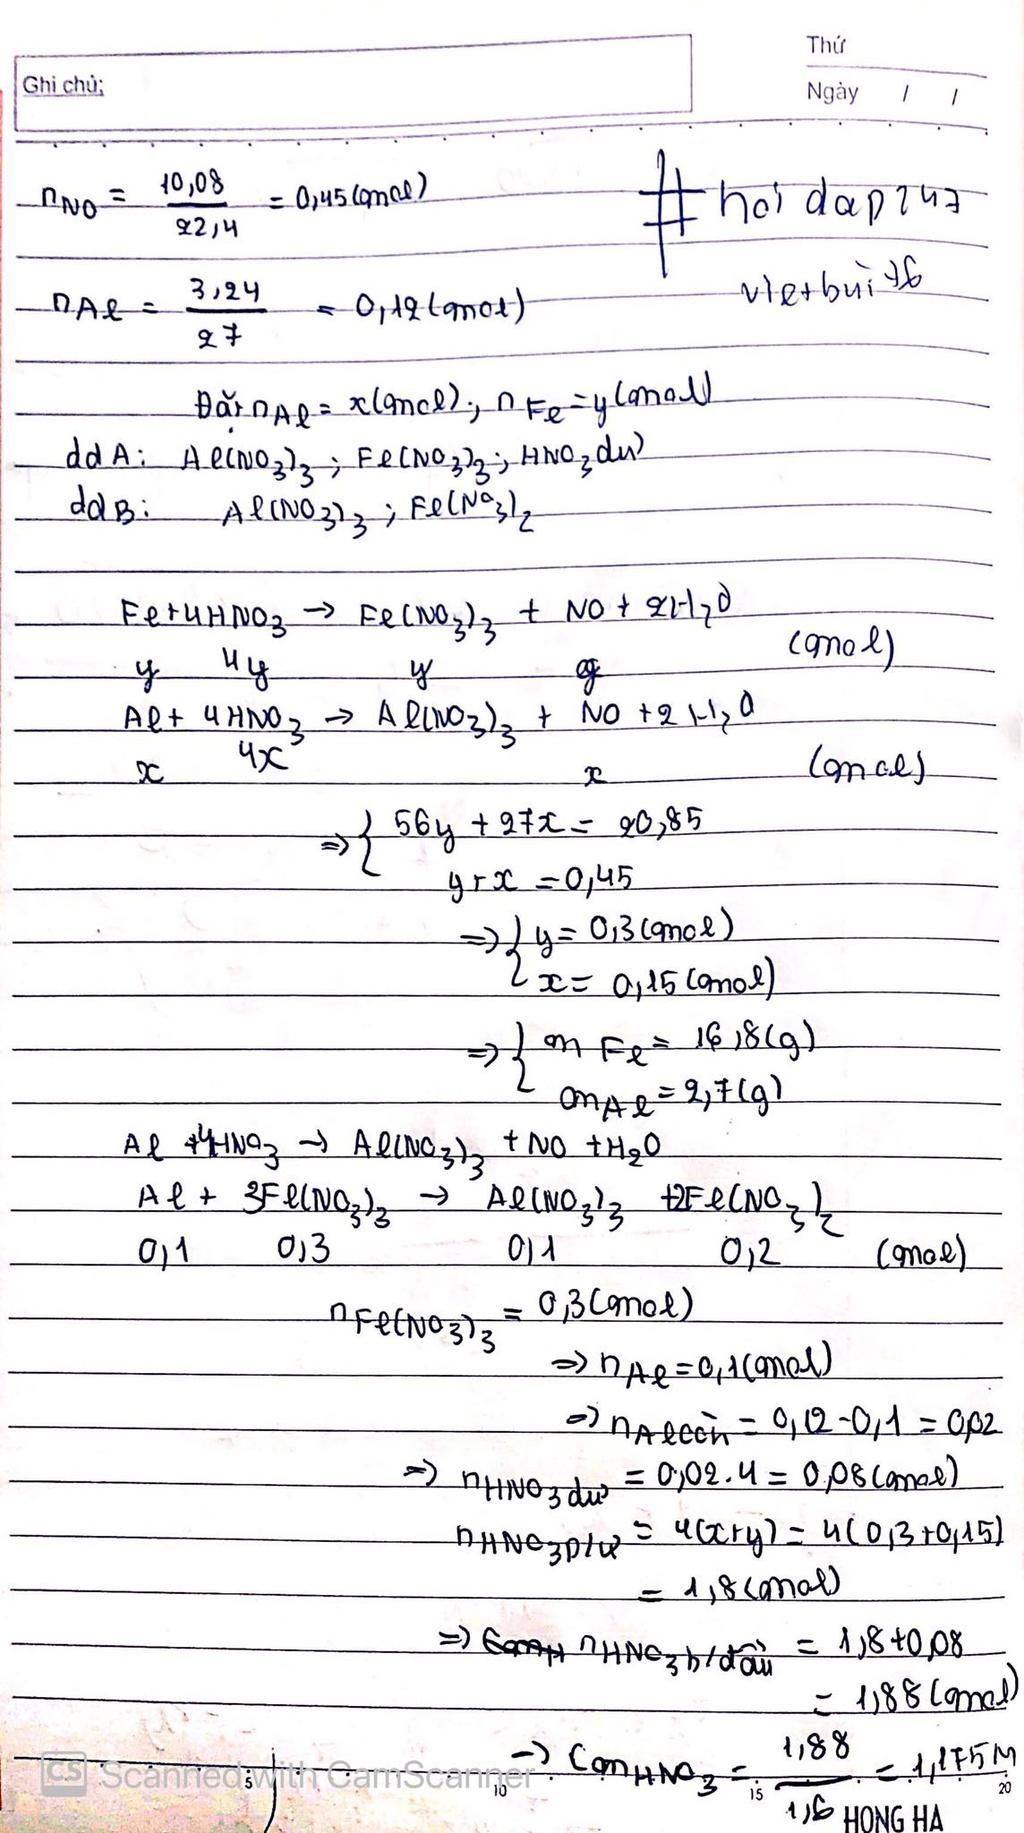 Thứ
Ghi chú:
Ngày / /
nNO = 10,08/22,4 = 0,45(mol)
#hoidap247
vietbui76
nAl = 3,24/27 = 0,12(mol)
Đặt nAl = x(mol); nFe = y(mol)
ddA: Al(NO3)3; Fe(NO3)3; HNO3 dư
ddB: Al(NO3)3; Fe(NO3)2
Fe + 4HNO3 → Fe(NO3)3 + NO + 2H2O
y 4y y y (mol)
Al + 4HNO3 → Al(NO3)3 + NO + 2H2O
x 4x x (mol)
=> { 56y + 27x = 20,85
y + x = 0,45
=> { y = 0,3(mol)
x = 0,15(mol)
=> { mFe = 16,8(g)
mAl = 2,7(g)
Al + 4HNO3 → Al(NO3)3 + NO + H2O
Al + 3Fe(NO3)3 → Al(NO3)3 + 2Fe(NO3)2
0,1 0,3 0,1 0,2 (mol)
nFe(NO3)3 = 0,3(mol)
=> nAl = 0,1(mol)
=> nAl còn = 0,12 - 0,1 = 0,02
=> nHNO3 dư = 0,02.4 = 0,08(mol)
nHNO3 p/ư = 4(x+y) = 4(0,3+0,15)
= 1,8(mol)
=> nHNO3 b/đầu = 1,8+0,08
= 1,88(mol)
→ CmHNO3 = 1,88/1,6 = 1,175M
CS Scanned with CamScanner
5 10 15 20
HONG HA